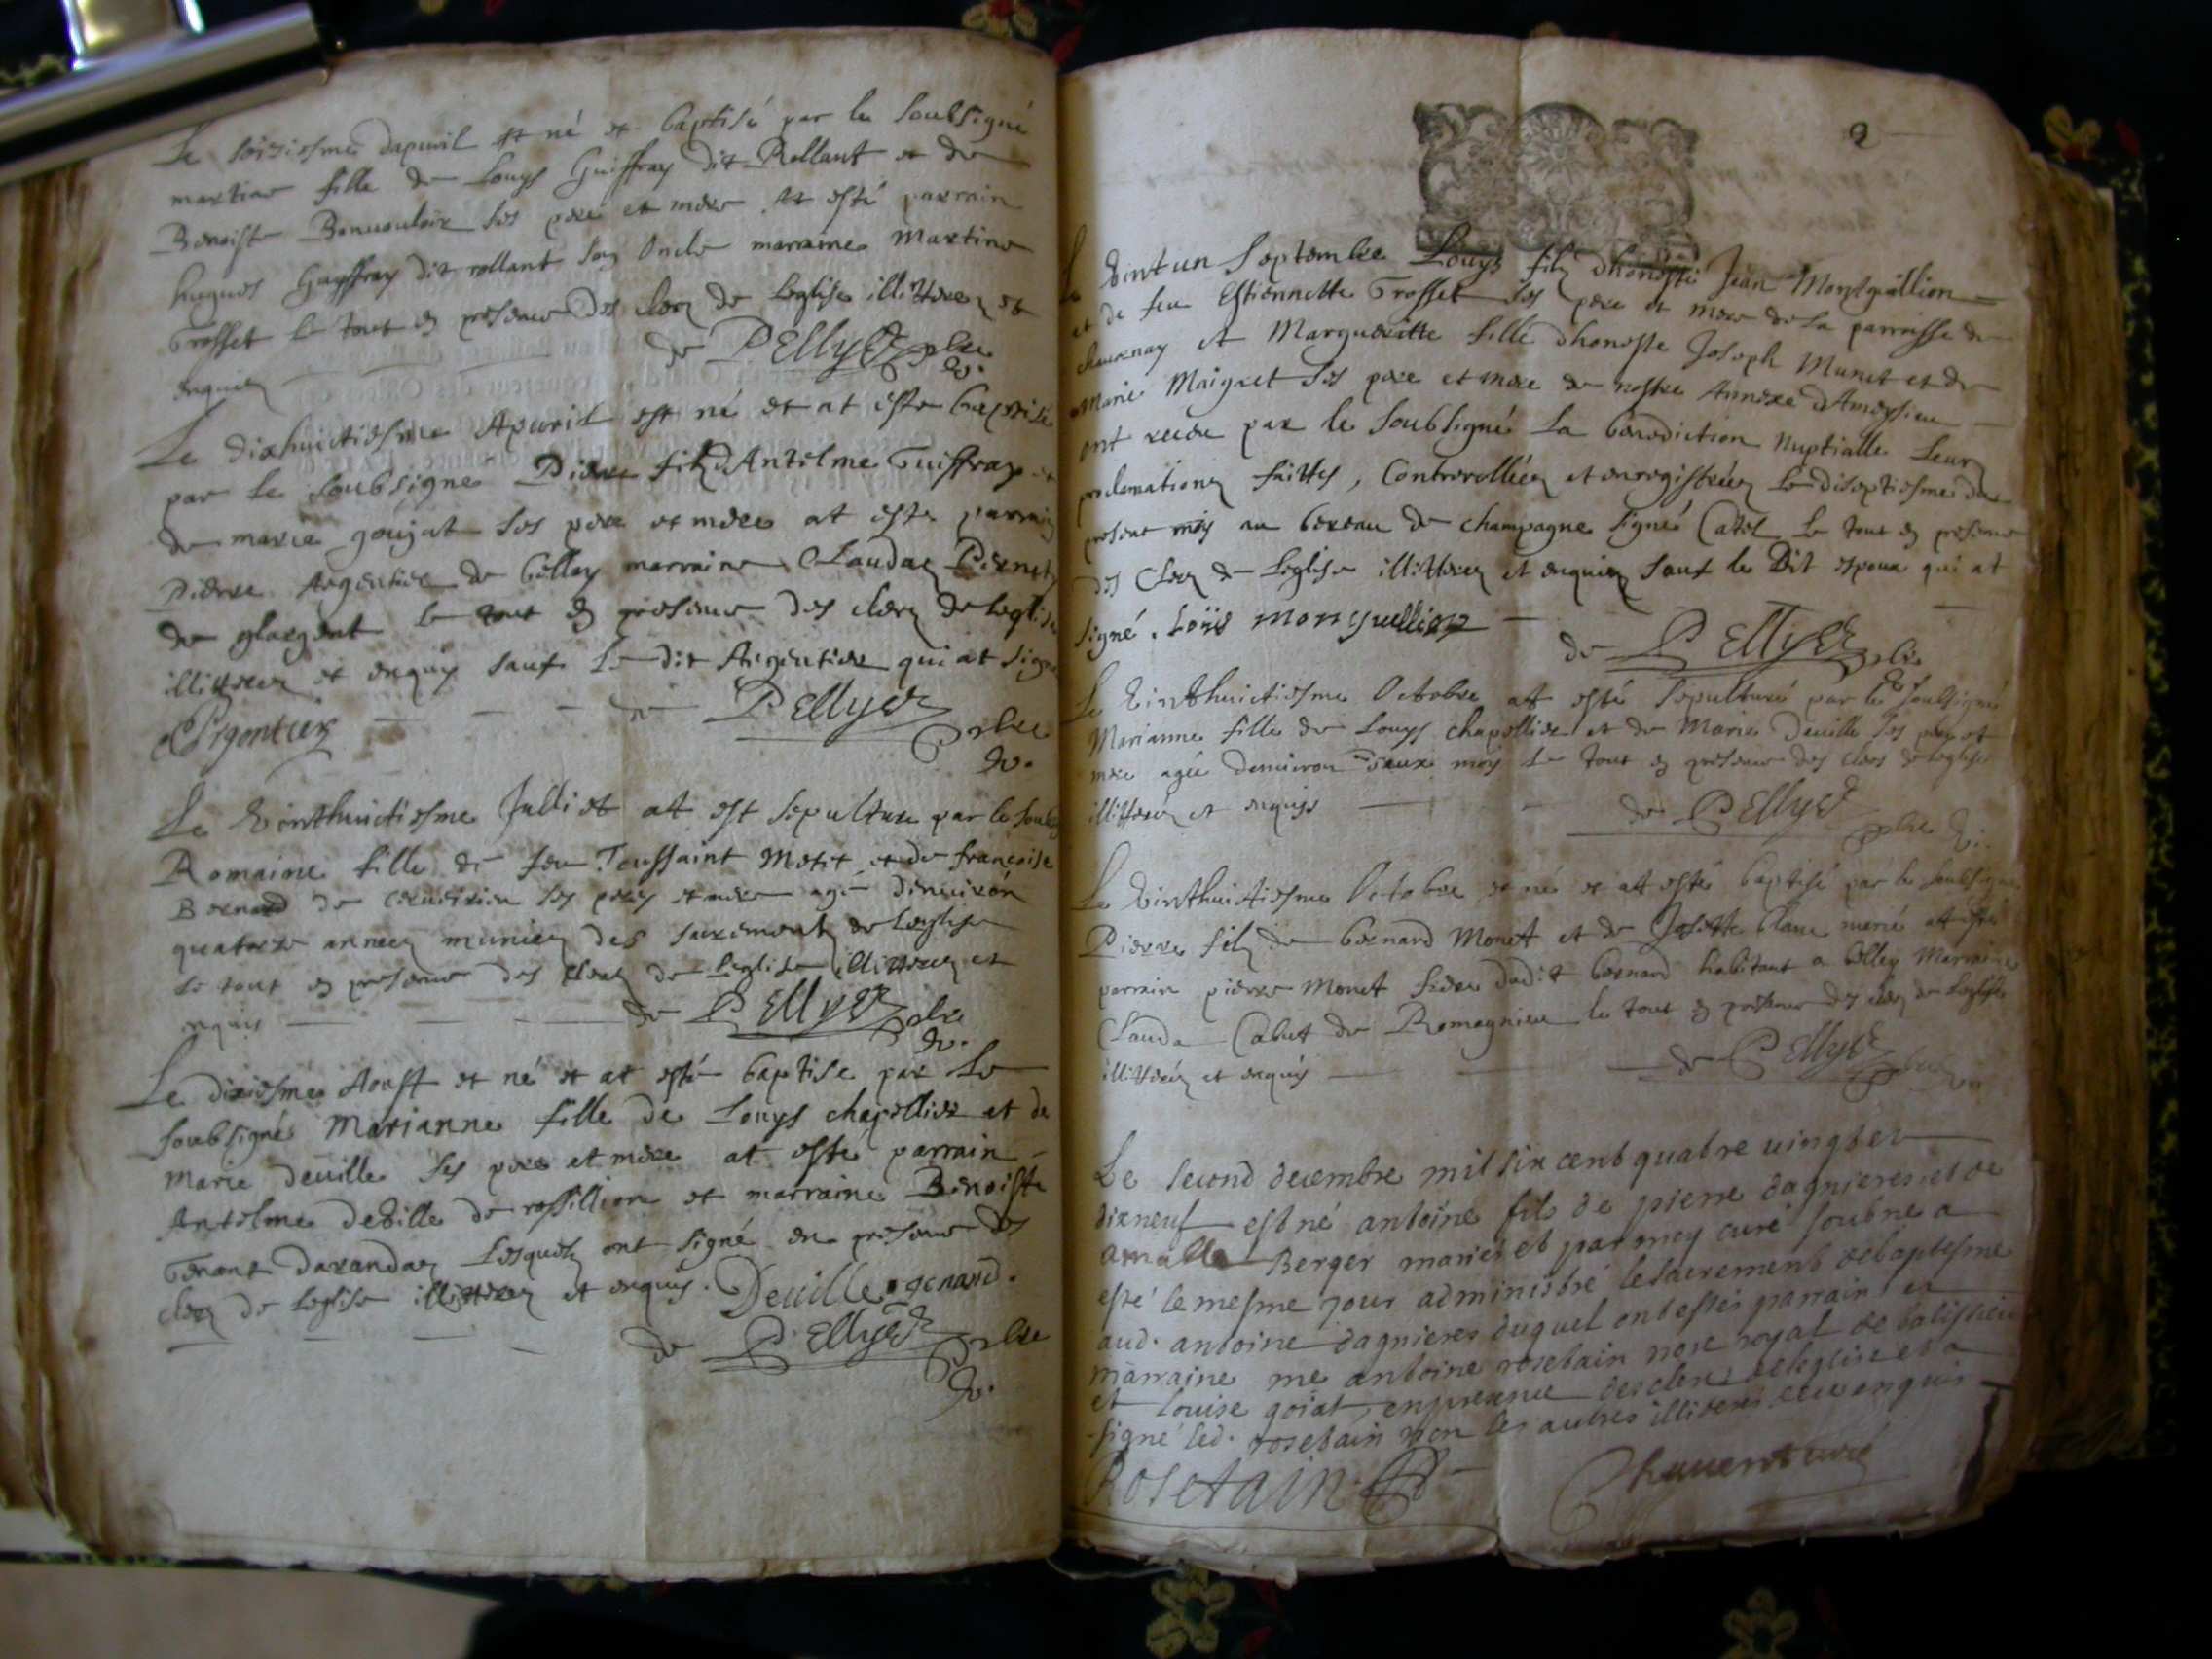 Le seiziesme dapuril est né et baptisé par le soubsigné
martine fille de Louys Guiffray dit Rollant et de
Benoiste Bonuouloir ses pere et mere At esté parrain
hugues Guyffray dit rollant son Oncle marraine Martine
Trosset le tout en presence des clerz de leglise illitterez et
enquis
de PEllyer pbre
Le dixhuictiesme Apuril est né et at esté baptisé
par le soubsigne Pierre filz dAntelme Guiffray et
de marie goujat ses pere et mere at esté parrain
Pierre Argentier de belley marraine Claudaz Pernet
de le tout en presence des clerz de leglise
illitterez et enquis sauf le dit Argentier qui at signé
Argentier de PEllyer pbre
Le Vinthuictiesme Julliet att est sepulture par le soubs
Romaine fille de feu Toussaint Motet et de francoise
Bernard de ses peres et mere agé denuiron
quatorze annees munies des sacrements de leglise
le tout en presence des clerz de leglise illitterez et
enquis de PEllyer pbre
Le dixiesme Aoust et né et at esté baptise par le
soubsigné Marianne fille de Louys chapellier et de
Marie deuille ses pere et mere at esté parrain
Antelme deville de rossillion et marraine Benoiste
Genant daxandaz Lesquels ont signé en presence des
clerz de leglise illitterez et enquis. Deuille genand.
de PEllyer pbre
9
Le Vint un Septembre Louys filz dhoneste Jean Montguillion
et de feu Estiennette Trosset ses pere et mere de la parroisse de
cheuznay et Margueritte fille dhoneste Joseph Munet et de
Marie Maigret ses pere et mere de nostre Annexe dAmeysieu
ont receu par le soubsigné la benediction Nuptialle leurs
proclamations faittes, Controrollées et enregistrées le diseptiesme du
present mois au bereau de champagne signé Catel le tout en presence
des Clerz de leglise illitterez et enquis sauf le Dit espoux qui at
signé. Loüis monguillion
de PEllyer pbre
Le Vinthuictiesme Octobre att esté sepulturé par le soubsigné
Marianne fille de Louys chapellier et de Marie Deuille ses pere et
mere agée denuiron deux mois le tout en presence des clers de leglise
illitterez et enquis de PEllyer pbre
Le Vinthuictiesme Octobre et né et att esté baptisé par le soubsigné
Pierre filz de bernard Monet et de Josette blanc mariés att esté
parrain pierre Monet frere dudit bernard habitant a belley Marraine
Clauda Cabut de Romagnieu le tout en presence des clerz de leglise
illitterez et enquis de PEllyer
Le second decembre mil six cent quatre vingt et
dixneuf est né antoine fils de pierre dagnieres et de
Berger mariés et par moy curé soubne a
esté le mesme jour administré le sacrement de baptesme
aud. antoine dagnieres duquel ont estés parrain et
marraine me antoine rosetain nore royal de
et Louise goiat, en presence des clers de leglise et a
signé led. rosetain non les autres illiterés de ce enquis
Rosetain
curé